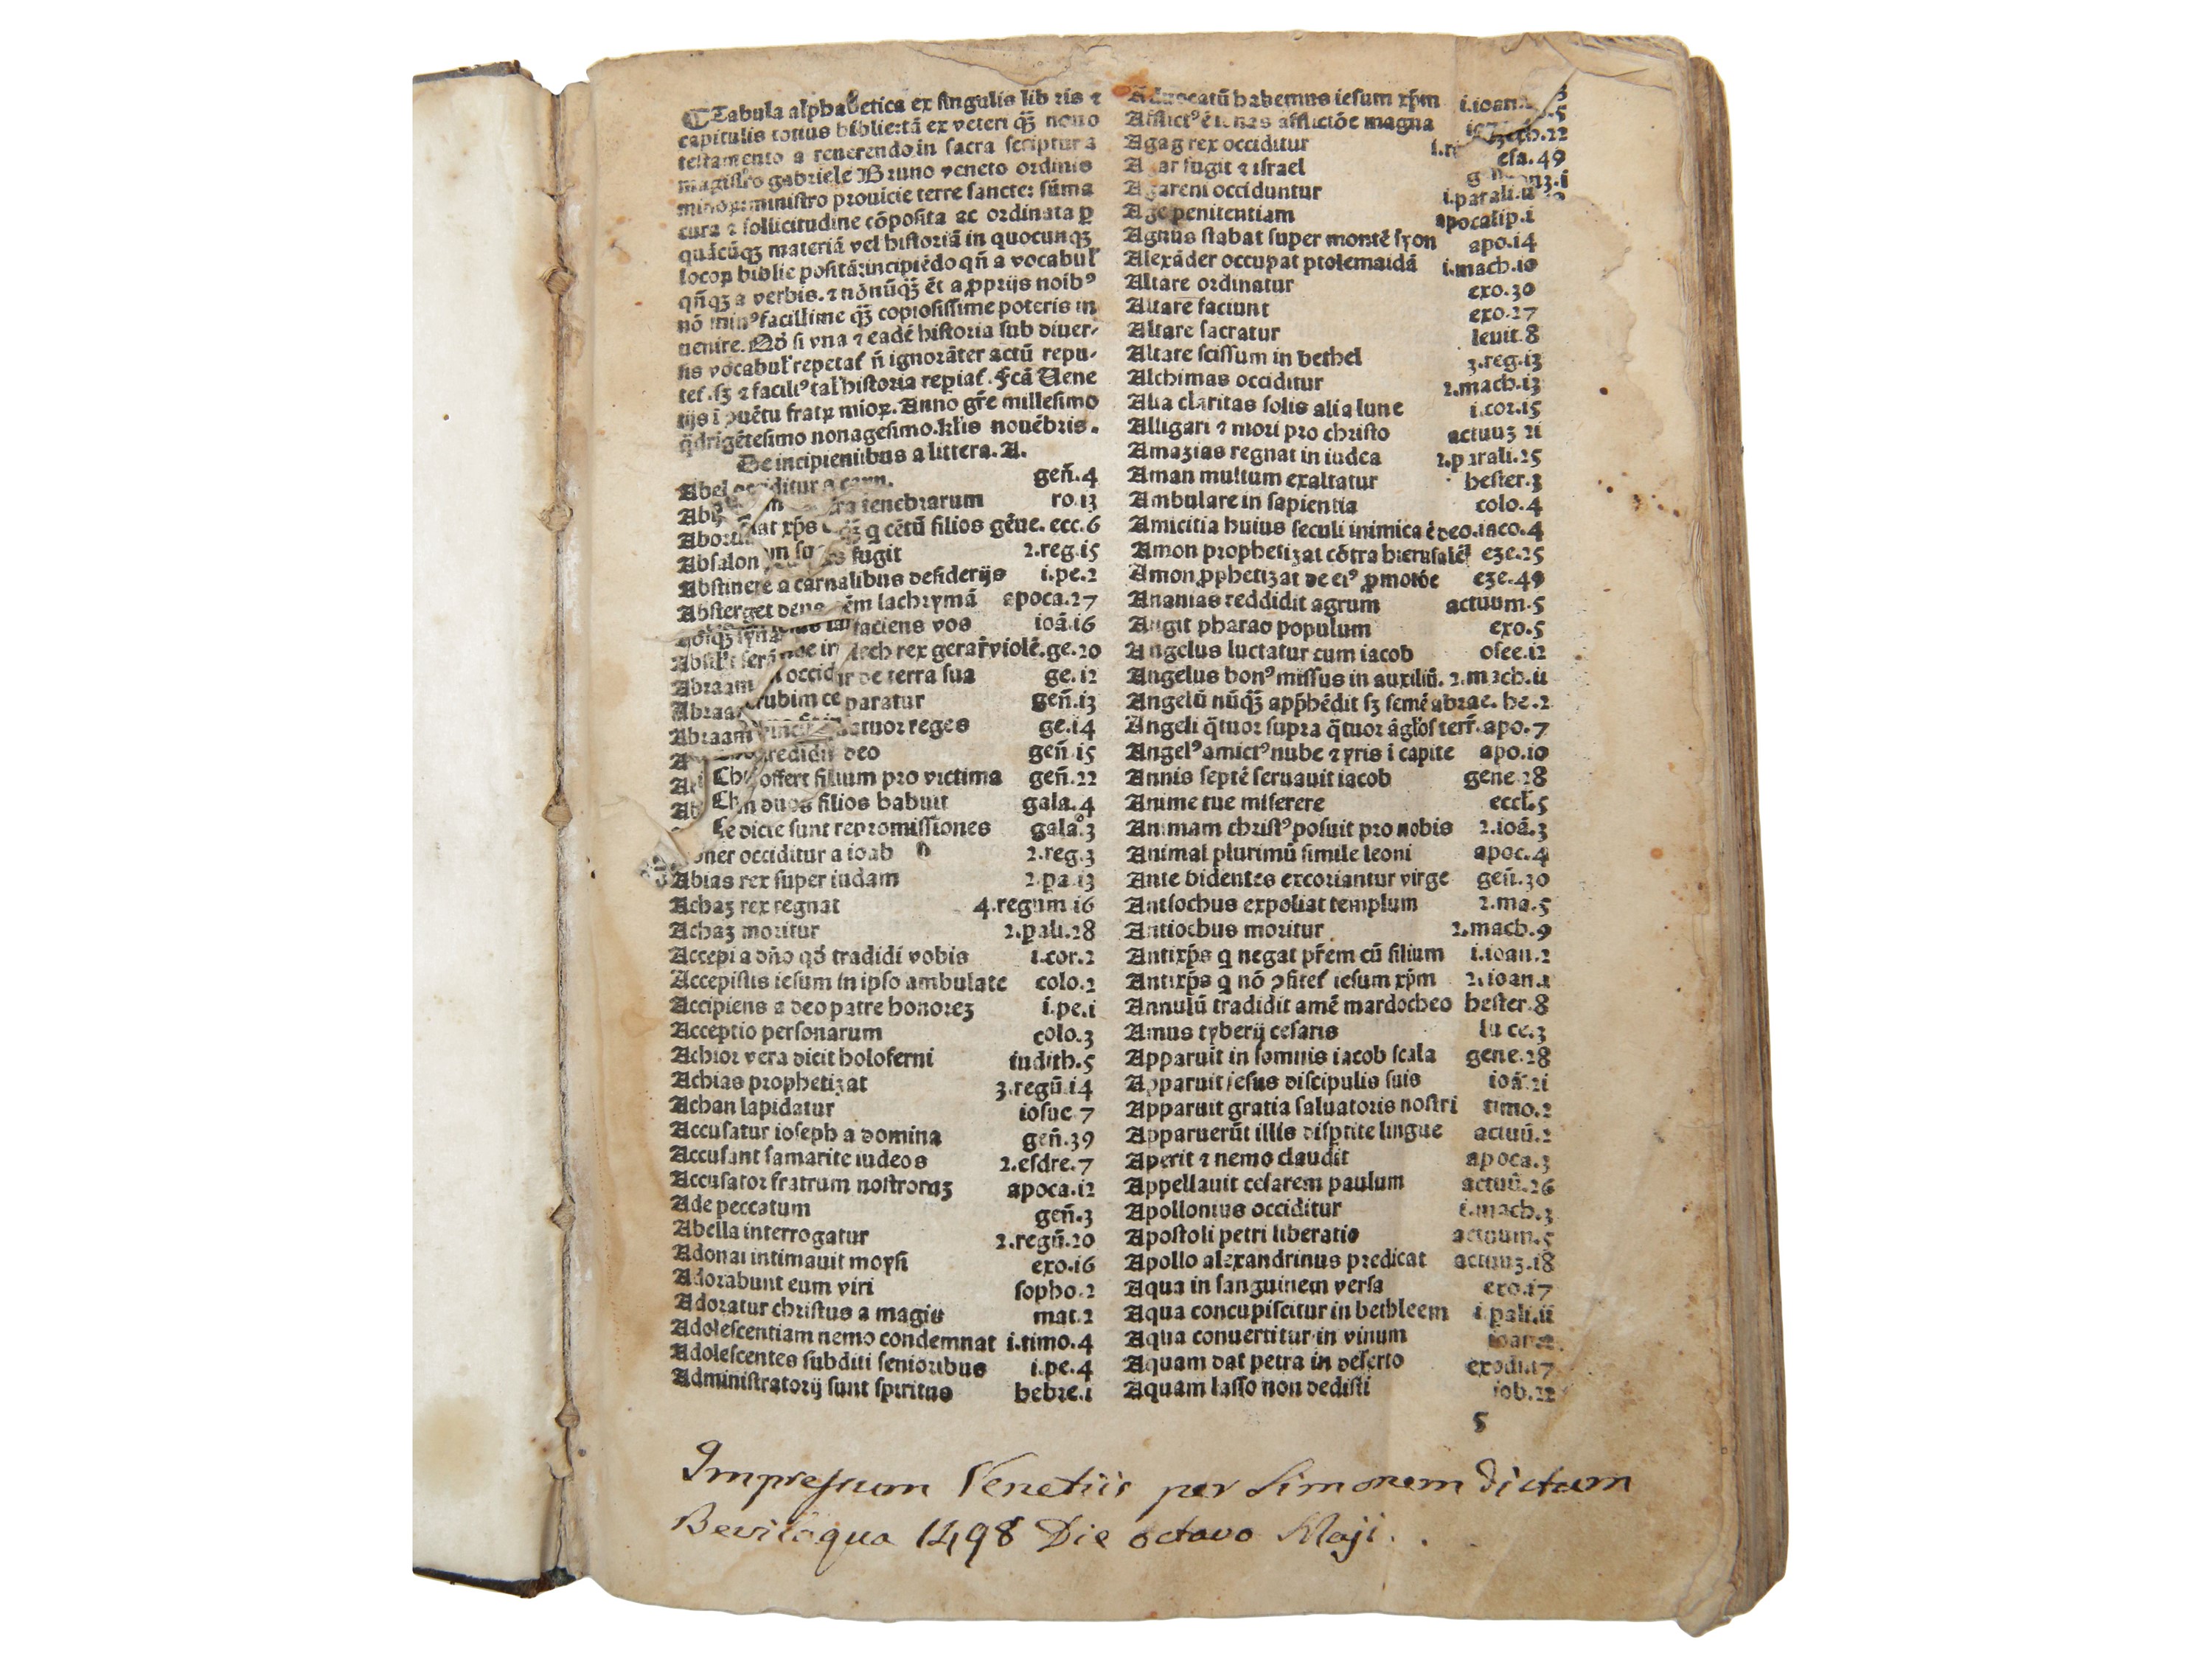 Tabula alphabetica ex singulis libris ⁊
capitulis totius biblie: tā ex veteri qꝫ̄ nouo
testamento a reuerendo in sacra scriptura
magistro gabriele Bruno veneto ordinis
minoꝝ: ministro prouīcie terre sancte: sūma
cura ⁊ sollicitudine cōposita ac ordinata ꝑ
quācūqꝫ materiā vel historiā in quocunqꝫ
locoꝝ biblie positā: incipiēdo qn̄ a vocabul̕
qn̄qꝫ a verbis. ⁊ nōnūqꝫ̄ ēt a ꝓprijs noībꝰ
nō minꝰ facillime qꝫ̄ copiosissime poteris in
uenire. Qđ si vna ⁊ eadē historia sub diuer-
sis vocabul̕ repetat̕ n̄ ignorāter actū repu-
tet̕. sꝫ ⁊ faciliꝰ tal̕ historia repiat̕. Fcā Uene
tijs ī ꝯuētu fratꝝ mioꝝ. Anno gr̄e millesimo
q̄drigētesimo nonagesimo. kl̕is nouēbris.
De incipientibus a littera. A.
Abel occiditur a gen̄.4
tenebrarum ro.13
xp̄s q cētū filios gēue. ecc.6
Absalon fugit 2.reg.i5
Abstinete a carnalibus desiderijs i.pe.2
Absterget deus ēm lachrymā apoca.27
faciens vos ioā.i6
rex gerar̄ violē.ge.20
Abraam de terra sua ge.i2
paratur gen̄.i3
Abraam reges ge.i4
deo gen̄.i5
offert filium pro victima gen̄.22
duos filios habuit gala.4
dicte sunt repromissiones gala.3
occiditur a ioab 2.reg.3
Abias rex super iudam 2.pa.i3
Achaꝫ rex regnat 4.regum i6
Achaꝫ moritur 2.pali.28
Accepi a dn̄o qđ tradidi vobis i.cor.2
Accepistis iesum in ipso ambulate colo.2
Accipiens a deo patre honoreꝫ i.pe.i
Acceptio personarum colo.3
Achior vera dicit holoferni iudith.5
Achias prophetizat 3.regū.i4
Achan lapidatur iosue 7
Accusatur ioseph a domina gen̄.39
Accusant samarite iudeos 2.esdre.7
Accusator fratrum nostroruꝫ apoca.i2
Ade peccatum gen̄.3
Abella interrogatur 2.regū.20
Adonai intimauit moysi exo.i6
Adorabunt eum viri sopho.2
Adoratur christus a magis mat.2
Adolescentiam nemo condemnat i.timo.4
Adolescentes subditi senioribus i.pe.4
Administratorij sunt spiritus hebre.i
Aduocatū habemus iesum xp̄m i.ioan.
afflictōe magna
Agag rex occiditur
Agar fugit ⁊ israel
Agareni occiduntur i.parali.
Age penitentiam apocalip.i
Agnus stabat super montē syon apo.i4
Alexāder occupat ptolemaidā i.mach.io
Altare ordinatur exo.30
Altare faciunt exo.27
Altare sacratur leuit.8
Altare scissum in bethel 3.reg.i3
Alchimas occiditur 2.mach.i3
Alia claritas solis alia lune i.cor.i5
Alligari ⁊ mori pro christo actuuꝫ 2i
Amazias regnat in iudea 2.parali.25
Aman multum exaltatur hester.3
Ambulare in sapientia colo.4
Amicitia huius seculi inimica ē deo.iaco.4
Amon prophetizat cōtra hierusalē eze.25
Amon ꝓphetizat de eiꝰ ꝓmotōe eze.49
Ananias reddidit agrum actuum.5
Augit pharao populum exo.5
Angelus luctatur cum iacob osee.i2
Angelus bonꝰ missus in auxiliū. 2.mach.ii
Angelū nūqꝫ̄ app̄hēdit sꝫ semē abrae. he.2
Angeli q̄tuor supra q̄tuor āgl̕os terr̄. apo.7
Angelꝰ amictꝰ nube ⁊ yris ī capite apo.io
Annis septē seruauit iacob gene.28
Anime tue miserere eccl̕.5
Animam christꝰ posuit pro nobis 2.ioā.3
Animal plurimū simile leoni apoc.4
Ante bidentes excoriantur virge gen̄.30
Antiochus expoliat templum 2.ma.5
Antiochus moritur 2.mach.9
Antixp̄s q negat pr̄em cū filium i.ioan.2
Antixp̄s q nō ꝯfitet̕ iesum xp̄m 2.ioan.1
Annulū tradidit amē mardocheo hester.8
Annus tyberij cesaris lu ce.3
Apparuit in somnis iacob scala gene.28
Apparuit iesus discipulis suis ioā.2i
Apparuit gratia saluatoris nostri timo.2
Apparuerūt illis disptite lingue actuū.2
Aperit ⁊ nemo claudit apoca.3
Appellauit cesarem paulum actuū.26
Apollonius occiditur i.mach.3
Apostoli petri liberatio actuum.5
Apollo alexandrinus predicat actuuꝫ.i8
Aqua in sanguinem versa exo.i7
Aqua concupiscitur in bethleem i.pali.ii
Aqua conuertitur in vinum ioan.2.
Aquam dat petra in deserto exodi.i7
Aquam lasso non dedisti iob.22
5
Impressum Venetiis per Simonem dictum
Bevilaqua 1498 Die octavo Maji.